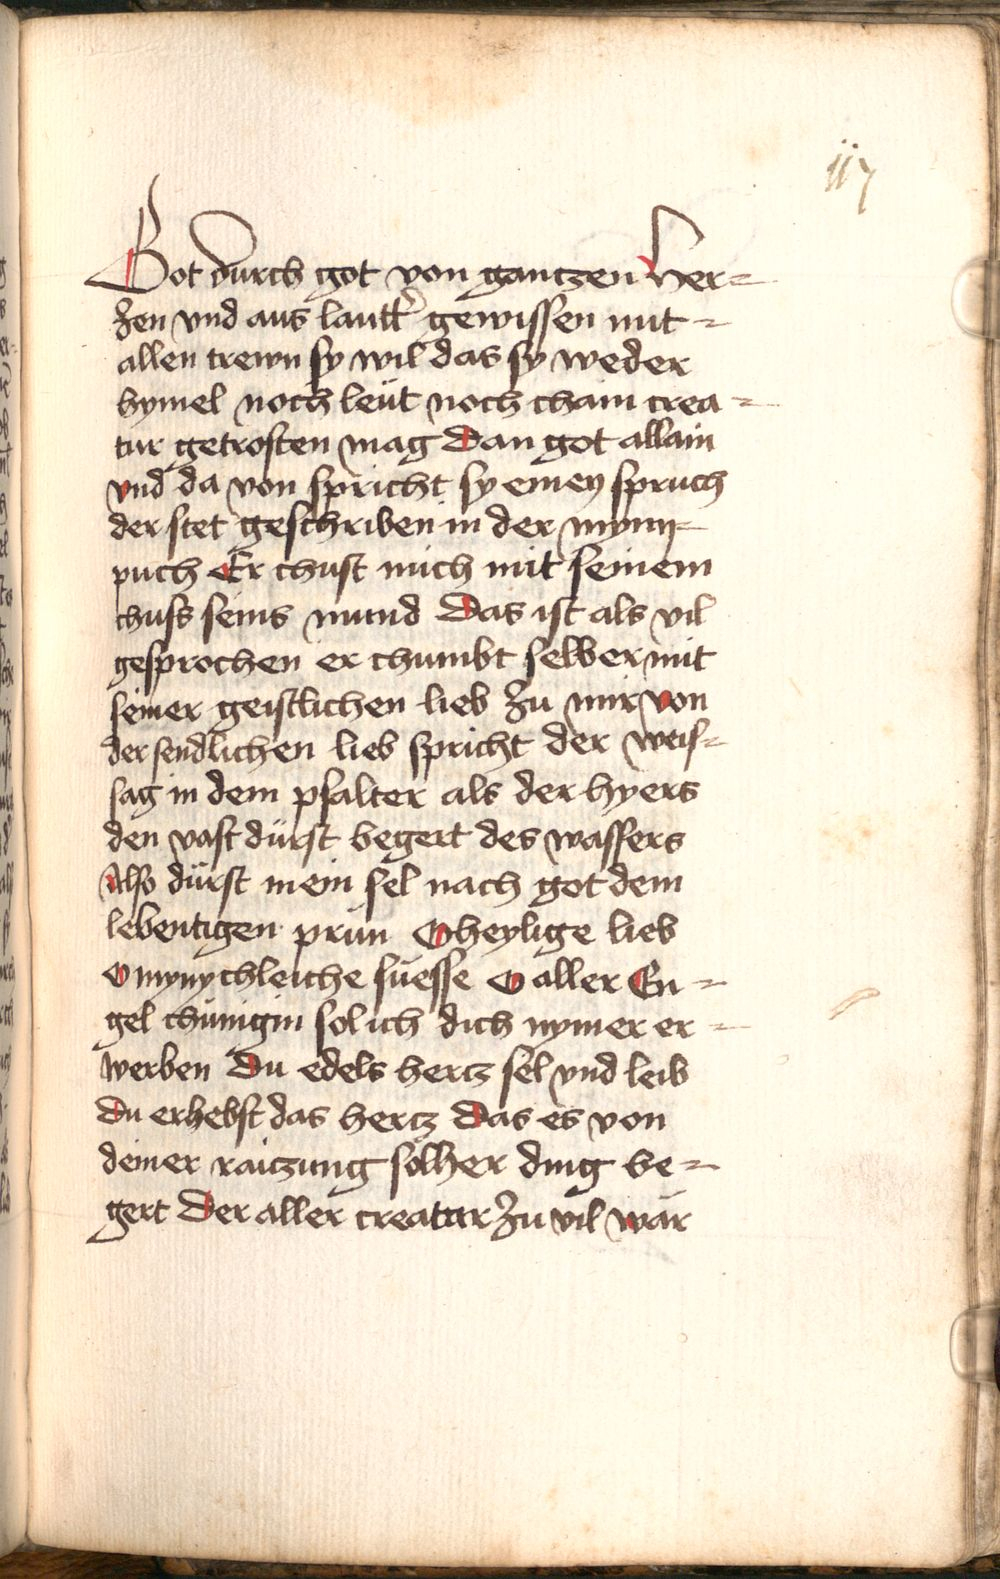 117
Got durch got von gantzen her-
zen vnd aus lautt᷑ gewissen mit
allen trewn sy wil das sy weder
hymel noch leüt noch chain crea-
tur getrosten mag Dan got allain
vnd da von spricht sy einen spruch
der stet geschriben in der mynn-
puch Er chust mich mit seinem
chuss seins mund Das ist als vil
gesprochen er chumbt selber mit
seiner geistlichen lieb zu mir von
der sendlichen lieb spricht der weis-
sag in dem psalter als der hyers
den vast dürst begert des wassers
Also dürst mein sel nach got dem
lebentigen prun O heylige lieb
O mynychleiche süesse O aller En-
gel chünigin sol ich dich nymer er-
werben Du edels hertz sel vnd leib
Du erhebst das hertz Das es von
deiner raitzung solher ding be-
gert Der aller creatur zu vil wär